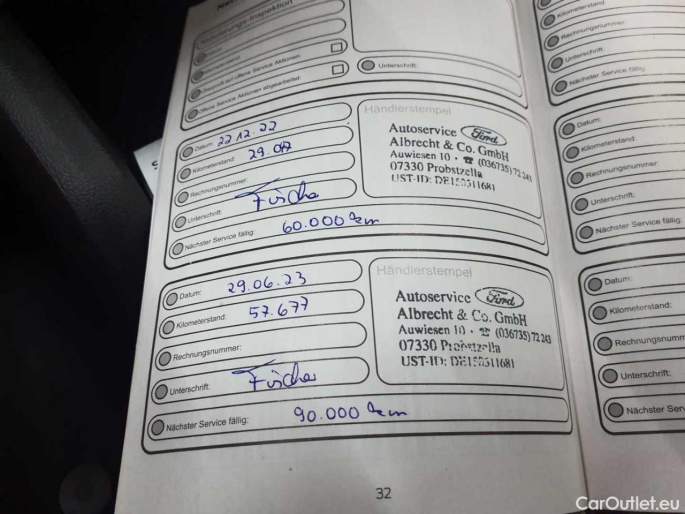 Unterschrift:
Datum: 22.12.22
Kilometerstand: 29.017
Rechnungsnummer:
Unterschrift: Fischer
Nächster Service fällig: 60.000 km
Händlerstempel
Autoservice Ford
Albrecht & Co. GmbH
Auwiesen 10 · ☎ (036735) 72 243
07330 Probstzella
UST-ID: DE150511681
Datum: 29.06.23
Kilometerstand: 57.677
Rechnungsnummer:
Unterschrift: Fischer
Nächster Service fällig: 90.000 km
Händlerstempel
Autoservice Ford
Albrecht & Co. GmbH
Auwiesen 10 · ☎ (036735) 72 243
07330 Probstzella
UST-ID: DE150511681
32
Kilometerstand:
Rechnungsnummer:
Unterschrift:
Nächster Service fällig:
Datum:
Kilometerstand:
Rechnungsnummer:
Unterschrift:
Nächster Service
Datum:
Kilometerstand:
Rechnungsnumm
Unterschrift:
Nächster Serv
CarOutlet.eu